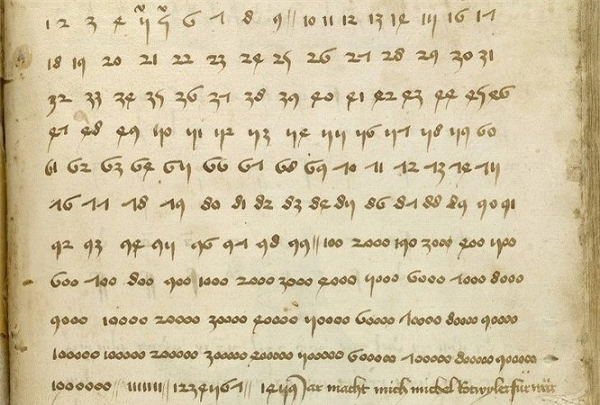 1 2 3 4 5 5 6 7 8 9 // 10 11 12 13 14 15 16 17
18 19 20 21 22 23 24 25 26 27 28 29 30 31
32 33 34 35 36 37 38 39 40 41 42 43 44 45 46
47 48 49 50 51 52 53 54 55 56 57 58 59 60
61 62 63 64 65 66 67 68 69 70 71 72 73 74 75
76 77 78 79 80 81 82 83 84 85 86 87 88 89 90 91
92 93 94 95 96 97 98 99 // 100 2000 190 3000 400 500
600 700 800 900 1000 2000 3000 4000 5000 6000 7000 8000
9000 10000 20000 30000 40000 50000 60000 70000 80000 90000
100000 100000 200000 300000 400000 500000 600000 700000 800000 900000
1000000 // 1234567 // 1459 macht mich michel Rotwyler für